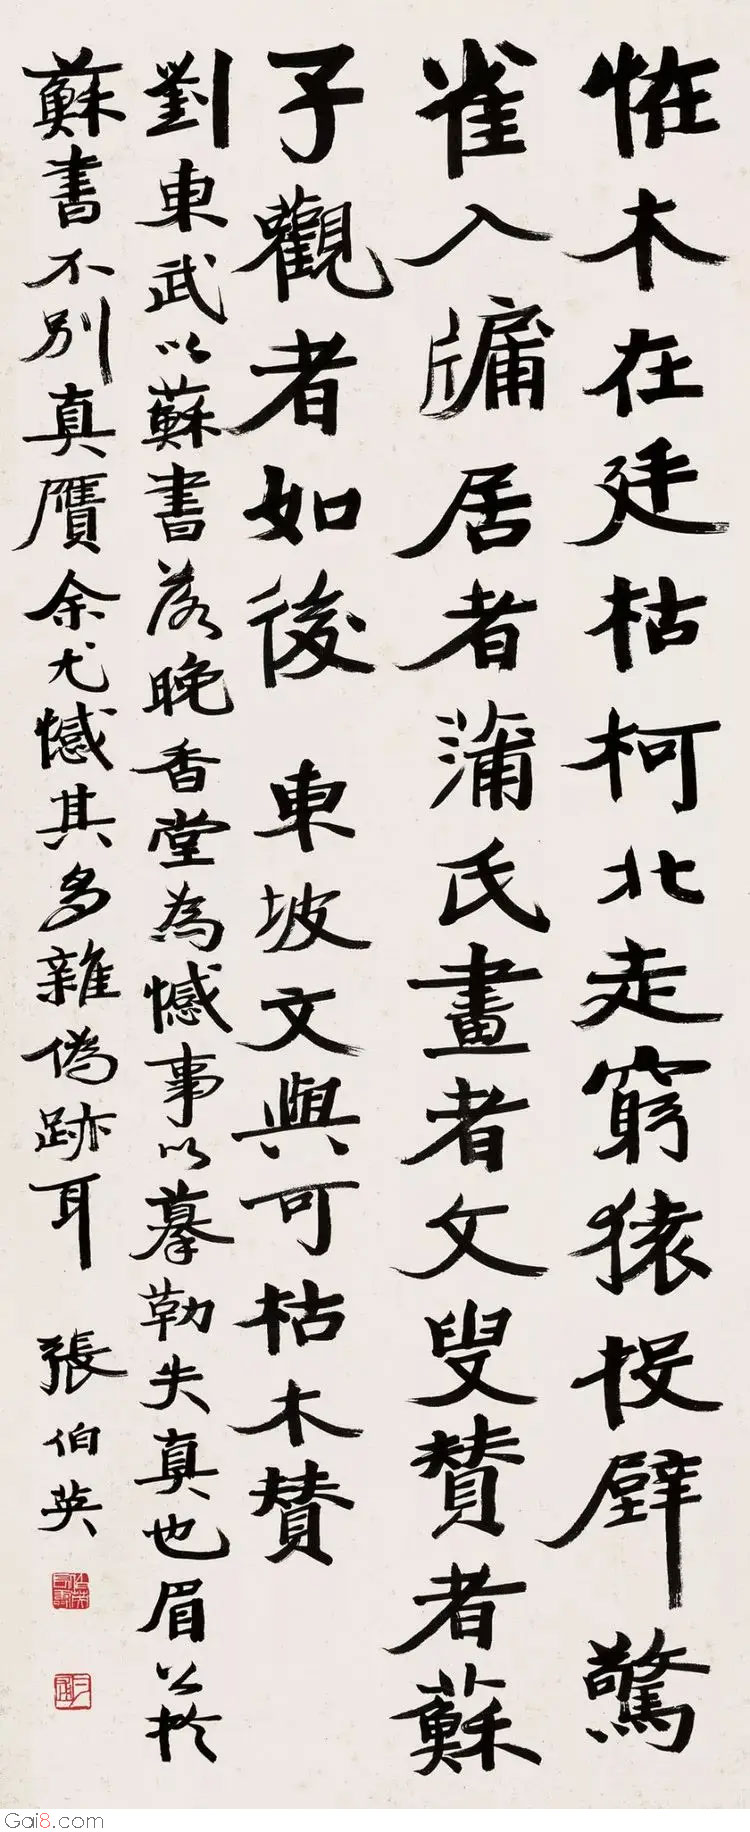 恠木在廷枯柯北走窮猿投壁驚
雀入牖居者蒲氏畫者文叟贊者蘇
子觀者如後 東坡文與可枯木贊
劉東武以蘇書落晚香堂為憾事以摹勒失真也眉公於
蘇書不別真贗余尤憾其多雜偽跡耳 張伯英
Gai8.com